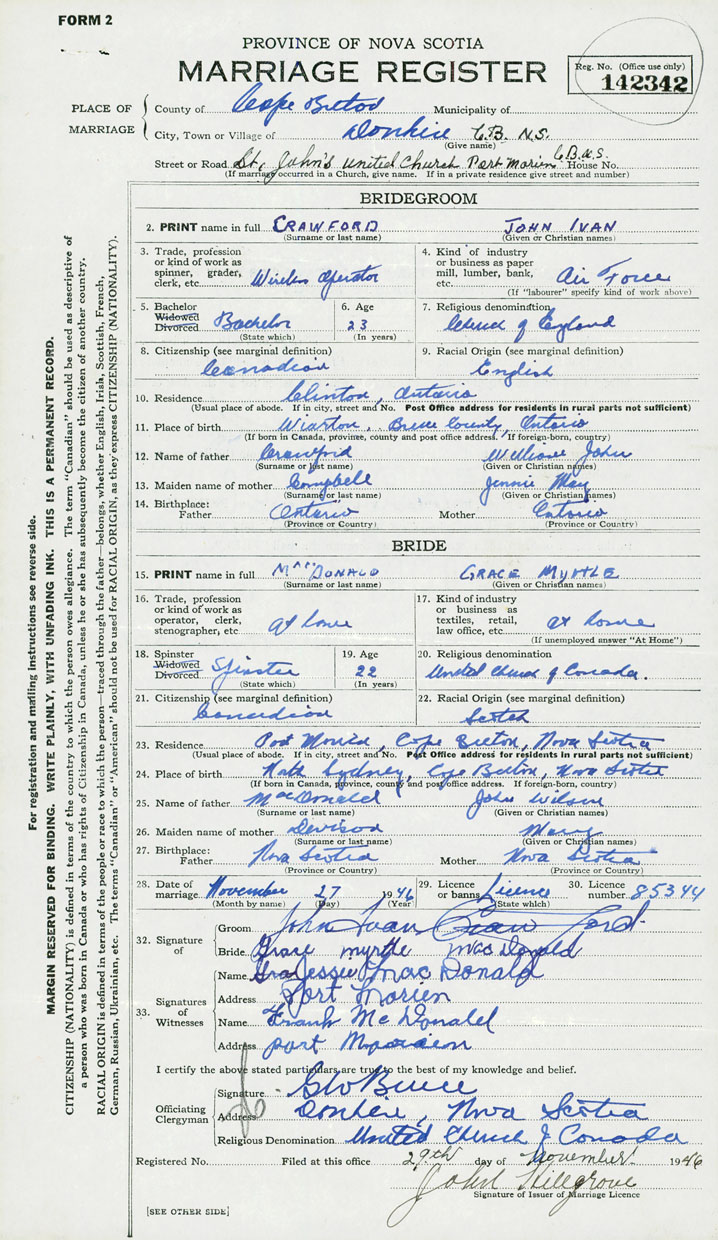 FORM 2
PROVINCE OF NOVA SCOTIA
MARRIAGE REGISTER
Reg. No. (Office use only)
142342
PLACE OF MARRIAGE
County of Cape Breton Municipality of
City, Town or Village of Donkin C.B. N.S.
(Give name)
Street or Road St. John's United Church Port Morien C.B. N.S. House No.
(If marriage occurred in a Church, give name. If in a private residence give street and number)
BRIDEGROOM
2. PRINT name in full CRAWFORD JOHN IVAN
(Surname or last name) (Given or Christian names)
3. Trade, profession or kind of work as spinner, grader, clerk, etc. Wireless Operator
4. Kind of industry or business as paper mill, lumber, bank, etc. Air Force
(If "labourer" specify kind of work above)
5. Bachelor Widowed Divorced Bachelor
(State which)
6. Age 23
(In years)
7. Religious denomination Church of England
8. Citizenship (see marginal definition) Canadian
9. Racial Origin (see marginal definition) English
10. Residence Clinton, Ontario
(Usual place of abode. If in city, street and No. Post Office address for residents in rural parts not sufficient)
11. Place of birth Wiarton, Bruce County, Ontario
(If born in Canada, province, county and post office address. If foreign-born, country)
12. Name of father Crawford William John
(Surname or last name) (Given or Christian names)
13. Maiden name of mother Campbell Jennie May
(Surname or last name) (Given or Christian names)
14. Birthplace: Father Ontario Mother Ontario
(Province or Country) (Province or Country)
BRIDE
15. PRINT name in full MacDONALD GRACE MYRTLE
(Surname or last name) (Given or Christian names)
16. Trade, profession or kind of work as operator, clerk, stenographer, etc. at home
17. Kind of industry or business as textiles, retail, law office, etc. at home
(If unemployed answer "At Home")
18. Spinster Widowed Divorced Spinster
(State which)
19. Age 22
(In years)
20. Religious denomination United Church of Canada.
21. Citizenship (see marginal definition) Canadian
22. Racial Origin (see marginal definition) Scotch
23. Residence Port Morien, Cape Breton, Nova Scotia
(Usual place of abode. If in city, street and No. Post Office address for residents in rural parts not sufficient)
24. Place of birth North Sydney, Cape Breton, Nova Scotia
(If born in Canada, province, county and post office address. If foreign-born, country)
25. Name of father MacDonald John Wilson
(Surname or last name) (Given or Christian names)
26. Maiden name of mother Davison Mary
(Surname or last name) (Given or Christian names)
27. Birthplace: Father Nova Scotia Mother Nova Scotia
(Province or Country) (Province or Country)
28. Date of marriage November 27 1946
(Month by name) (Day) (Year)
29. Licence or banns Licence
(State which)
30. Licence number 85344
32. Signature of
Groom John Ivan Crawford
Bride Grace Myrtle MacDonald
33. Signatures of Witnesses
Name Jessie MacDonald
Address Port Morien
Name Frank McDonald
Address Port Morien
I certify the above stated particulars are true to the best of my knowledge and belief.
Officiating Clergyman
Signature Bruce
Address Donkin, Nova Scotia
Religious Denomination United Church of Canada
Registered No. Filed at this office 29th day of November 1946
John Hillgrove
Signature of Issuer of Marriage Licence
[SEE OTHER SIDE]
For registration and mailing instructions see reverse side.
MARGIN RESERVED FOR BINDING. WRITE PLAINLY, WITH UNFADING INK. THIS IS A PERMANENT RECORD.
CITIZENSHIP (NATIONALITY) is defined in terms of the country to which the person owes allegiance. The term "Canadian" should be used as descriptive of
a person who was born in Canada or who has rights of Citizenship in Canada, unless he or she has subsequently become the citizen of another country.
RACIAL ORIGIN is defined in terms of the people or race to which the person—traced through the father—belongs, whether English, Irish, Scottish, French,
German, Russian, Ukrainian, etc. The terms "Canadian" or "American" should not be used for RACIAL ORIGIN, as they express CITIZENSHIP (NATIONALITY).